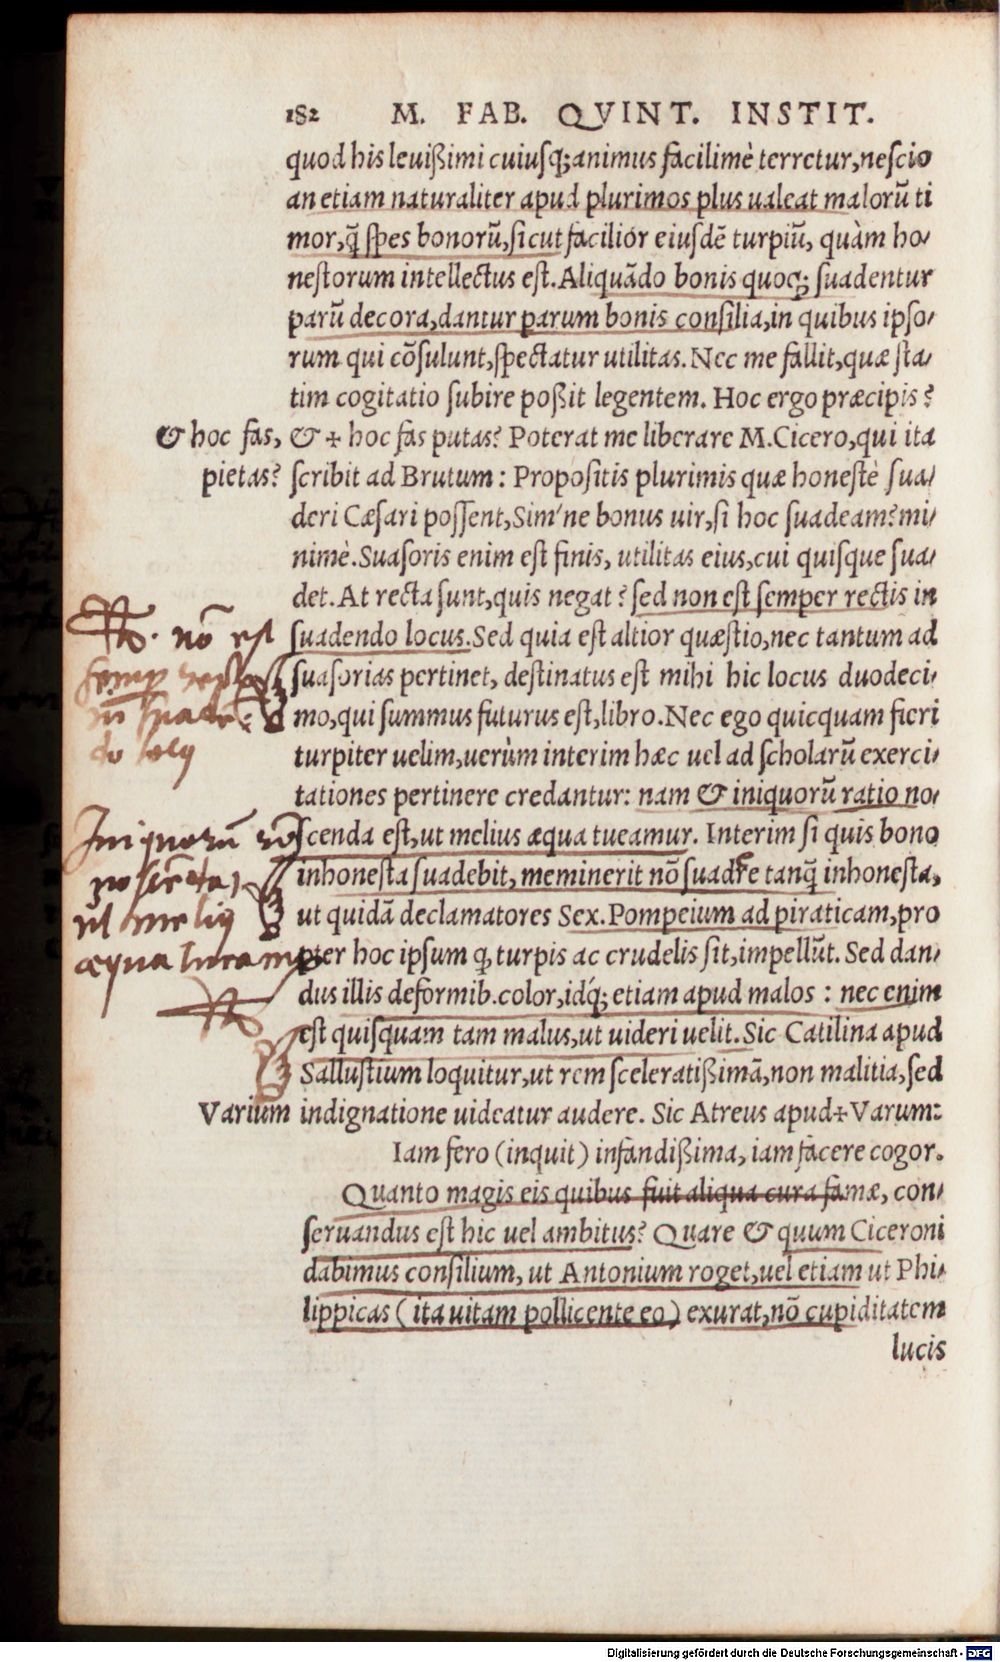 182 M. FAB. QVINT. INSTIT.
quod his leuißimi cuiusq; animus facilimè terretur, nescio
an etiam naturaliter apud plurimos plus ualeat malorū ti
mor, q̄ spes bonorū, sicut facilior eiusdē turpiū, quàm ho-
nestorum intellectus est. Aliquādo bonis quoq; suadentur
parū decora, dantur parum bonis consilia, in quibus ipso-
rum qui cōsulunt, spectatur utilitas. Nec me fallit, quæ sta-
tim cogitatio subire poßit legentem. Hoc ergo præcipis?
& hoc fas, & + hoc fas putas? Poterat me liberare M. Cicero, qui ita
pietas? scribit ad Brutum: Propositis plurimis quæ honestè sua-
deri Cæsari possent, Sim'ne bonus uir, si hoc suadeam? mi-
nimè. Suasoris enim est finis, utilitas eius, cui quisque sua-
det. At recta sunt, quis negat? sed non est semper rectis in
suadendo locus. Sed quia est altior quæstio, nec tantum ad
suasorias pertinet, destinatus est mihi hic locus duodeci-
mo, qui summus futurus est, libro. Nec ego quicquam fieri
turpiter uelim, uerùm interim hæc uel ad scholarū exerci-
tationes pertinere credantur: nam & iniquorū ratio no-
scenda est, ut melius æqua tueamur. Interim si quis bono
inhonesta suadebit, meminerit nō suadere tanq̄ inhonesta,
ut quidā declamatores Sex. Pompeium ad piraticam, pro
pter hoc ipsum q̄ turpis ac crudelis sit, impellūt. Sed dan-
dus illis deformib. color, idq́; etiam apud malos: nec enim
est quisquam tam malus, ut uideri uelit. Sic Catilina apud
Sallustium loquitur, ut rem sceleratißimā, non malitia, sed
Varium indignatione uideatur audere. Sic Atreus apud + Varum:
Iam fero (inquit) infandißima, iam facere cogor.
Quanto magis eis quibus fuit aliqua cura famæ, con-
seruandus est hic uel ambitus? Quare & quum Ciceroni
dabimus consilium, ut Antonium roget, uel etiam ut Phi-
lippicas (ita uitam pollicente eo) exurat, nō cupiditatem
lucis
nō est
Iniquorū rō
ut melius
æqua tueam
Digitalisierung gefördert durch die Deutsche Forschungsgemeinschaft - DFG